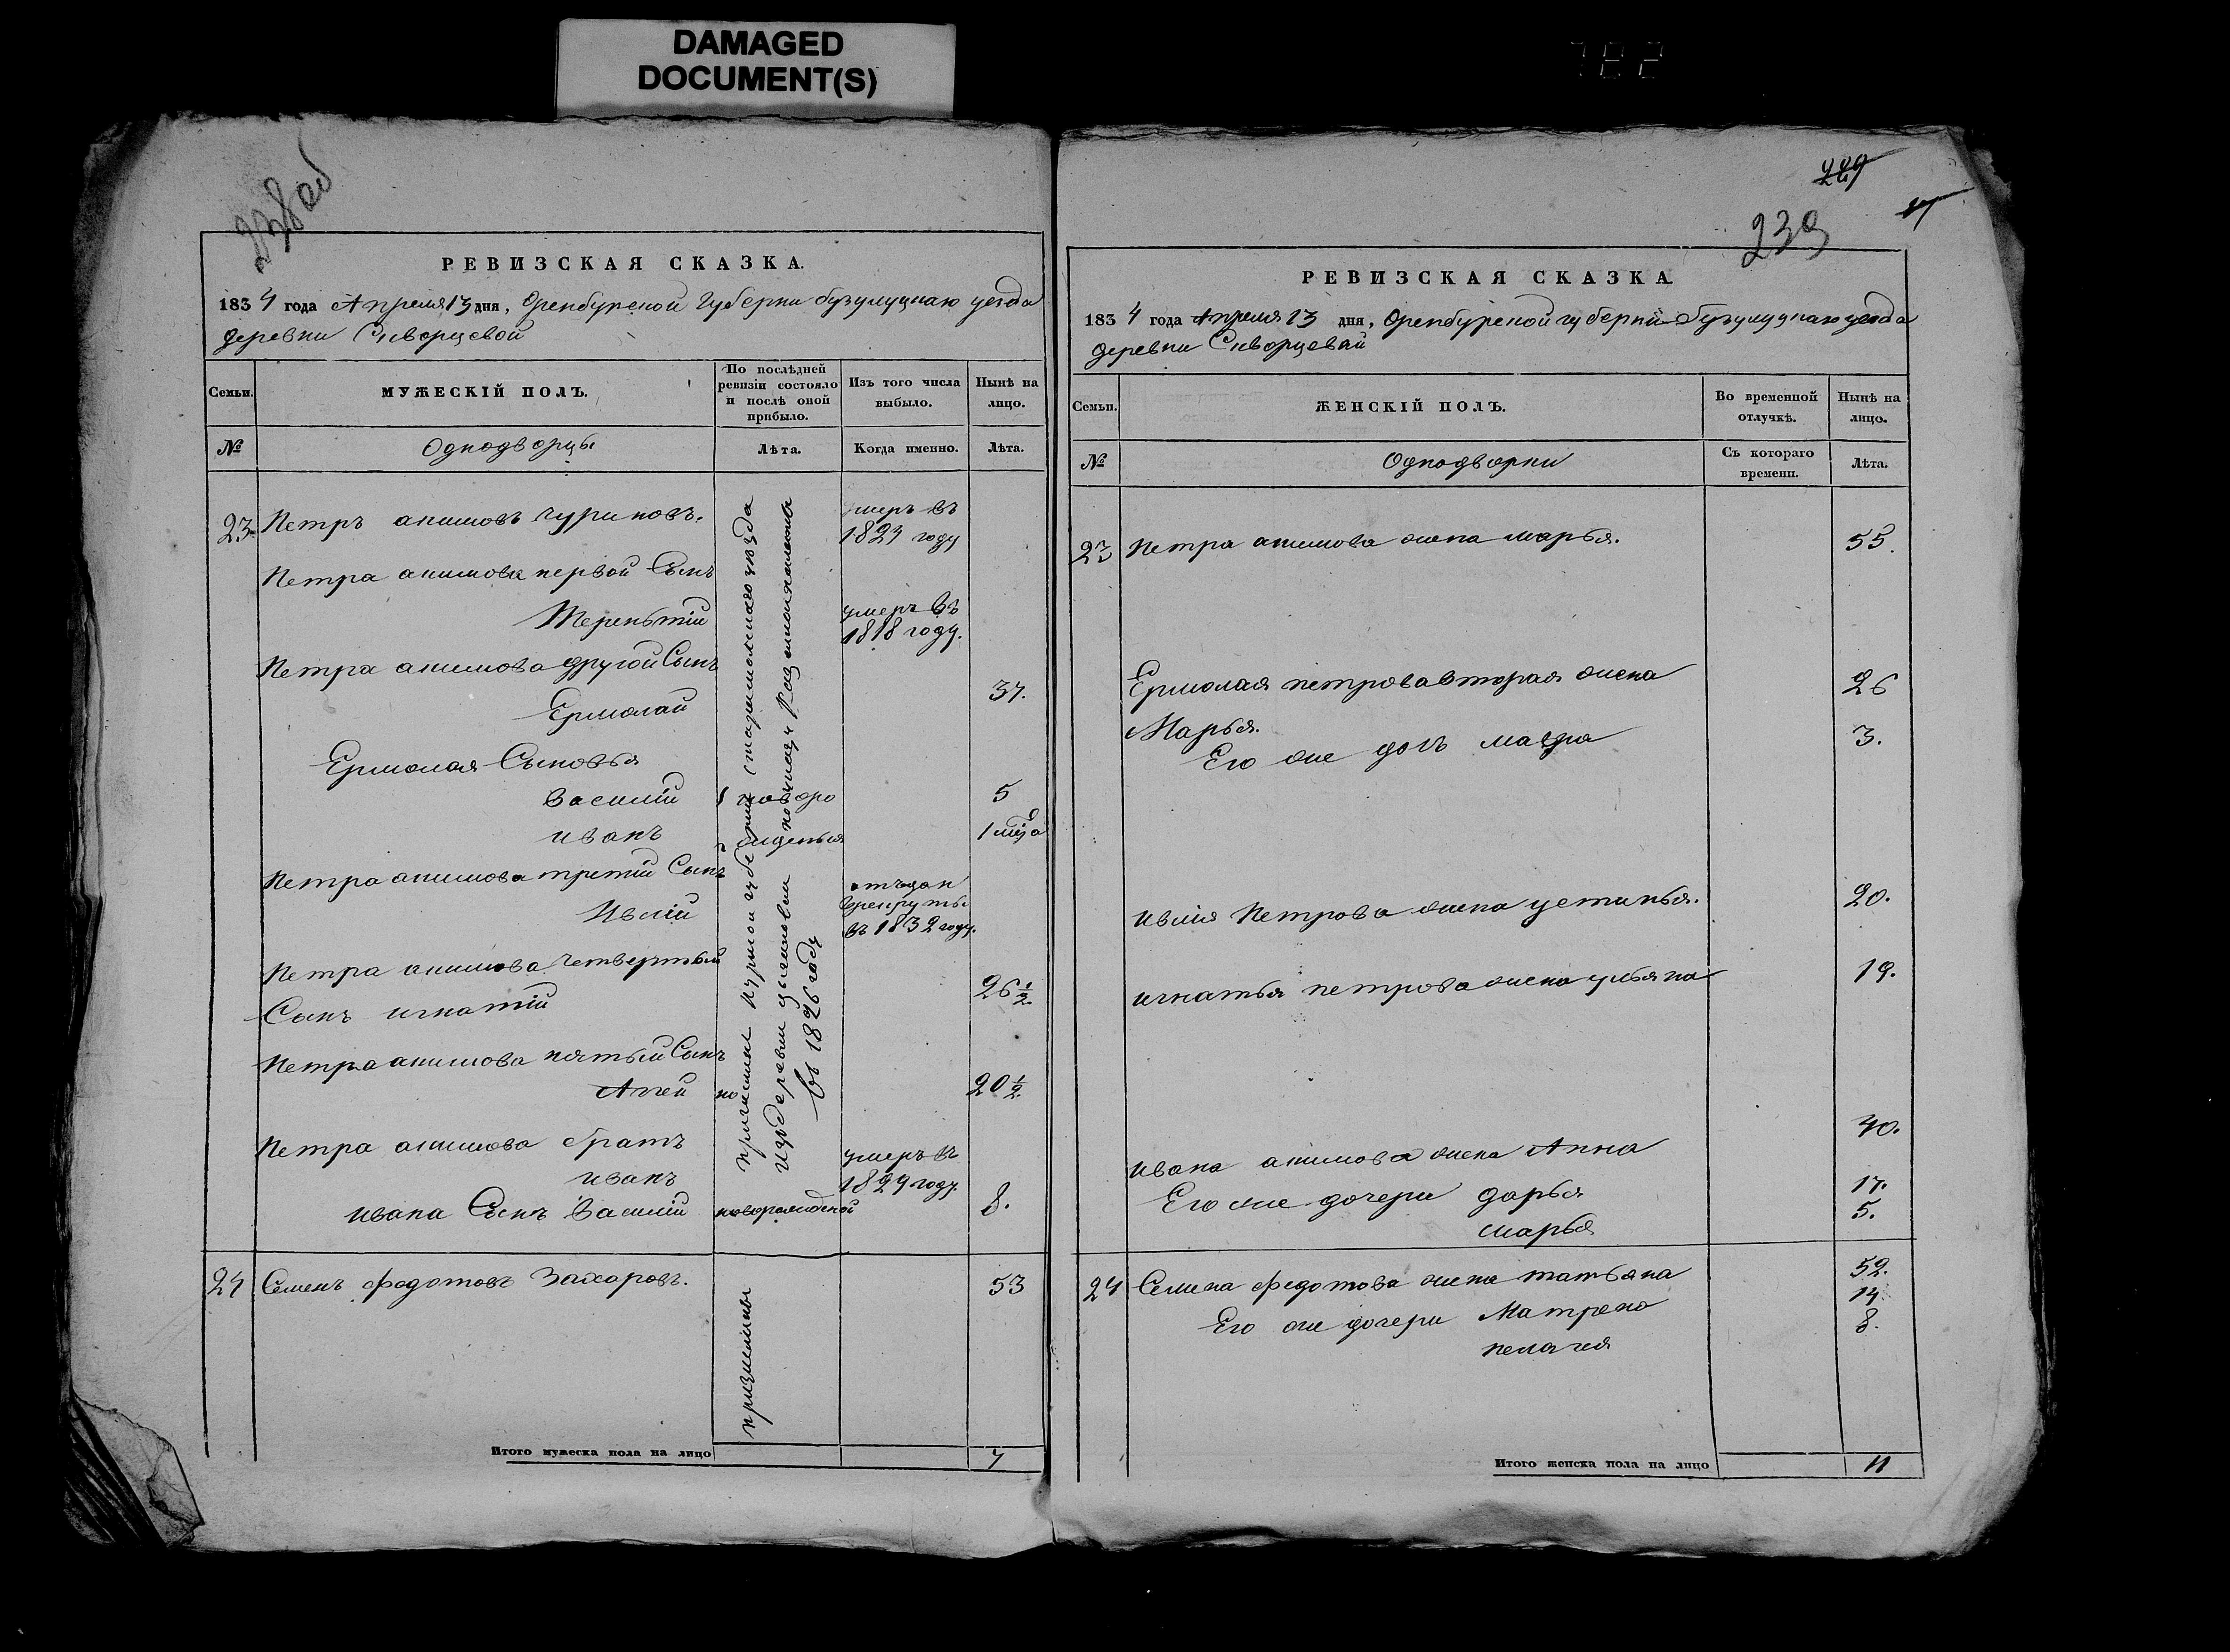 DAMAGED
DOCUMENT(S)
238об
РЕВИЗСКАЯ СКАЗКА.
1834 года Апреля 13 дня, Оренбургской губерни бузулуцкаю уезда
деревни Скворцевой
Семьи.
МУЖЕСКІЙ ПОЛЪ.
По послѣдней
ревизіи состояло
и послѣ оной
прибыло.
Изъ того числа
выбыло.
Нынѣ на
лицо.
№
Однодворцы
Лѣта.
Когда именно.
Лѣта.
23 Петръ акимовъ чуриковъ. умеръ въ
1824 году
Петра акимова первой Сынъ
Мереньтій умеръ въ
1818 году.
Петра акимова другой Сынъ
Ермолай 37.
Ермолая Сыновья
Василій новоро 5
иванъ жденыя
Петра акимова третій Сынъ
Ивлій отъдан
в рекруты
въ 1832 году.
Петра акимова четвертый
Сынъ игнатій 26 1/2.
Петра акимова пятый Сынъ
20 1/2.
Петра акимова братъ
иванъ умеръ въ
1829 году.
ивана Сынъ Василій новорожденой 8.
причислены курской губернии старооскольскаго уезда
из деревни
въ 1826 году
24 Семенъ федотовъ Захаровъ. 53
Итого мужеска пола на лицо 7
229
239
РЕВИЗСКАЯ СКАЗКА
1834 года Апреля 13 дня, Оренбургской губерніи Бузулуцкаю уезда
деревни Скворцевай
Семьи.
ЖЕНСКІЙ ПОЛЪ.
Во временной
отлучкѣ.
Нынѣ на
лицо.
№
Однодворки
Съ котораго
времени.
Лѣта.
23 Петра акимова жена марья. 55.
Ермолая петрова вторая жена 26
Марья.
Его же дочь мавра 3.
ивлия Петрова жена устинья. 20.
игнатья петрова жена ульяна 19.
ивана акимова жена Анна 40.
Его же дочери дарья 17.
марья 5.
24 Семена федотова жена татьяна 52.
Его же дочери Матрена 14.
пелагея 8.
Итого женска пола на лицо 11